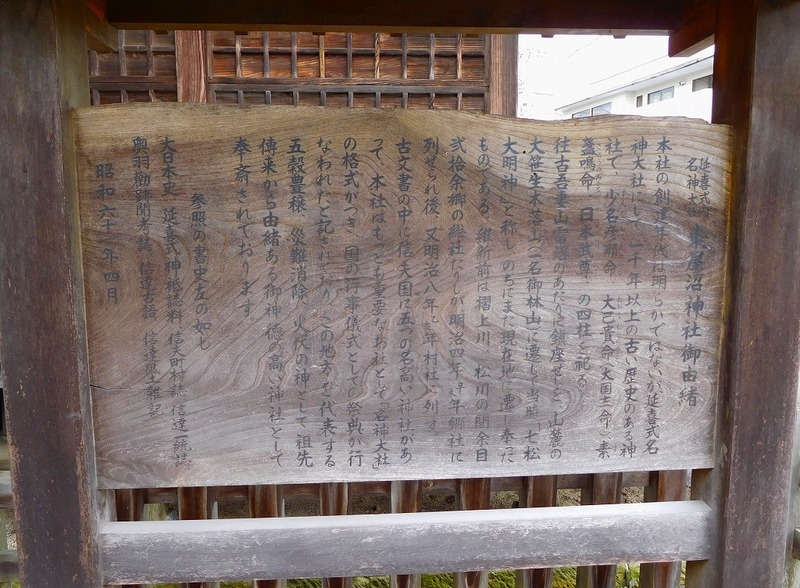 延喜式内
名神大社
東屋沼神社御由緒
本社の創建年代は明らかではないが延喜式名
神大社にして一千年以上の古い歴史のある神
社で、少名彦那命 大己貴命(大国主命)素
盞鳴命 日本武尊 の四柱を祀る
往古吾妻山雷沼のあたりに鎮座せしを、山麓の
大笹生 山(一名御林山)に遷して当時、七松
大明神」と称し のちにまた現在地に遷し奉った
ものである、維新前は摺上川、松川の間余目
弐拾余郷の総社たりしが明治四年 年郷社に
列せられ後、又明治八年 年村社に列す。
古文書の中に信夫国に五つの名高い神社があ
って 本社はもっとも重要なお社として「名神大社」
の格式がつき 国の行事儀式としての祭典が行
なわれたと記されており、この地方を代表する
五穀豊穣、災難消除、火伏の神として祖先
傳来から由緒ある御神徳の高い神社として
奉斎されております。
参照の書史左の如し
大日本史 延喜式神祗誌料 信夫町村誌 信達一統誌
奥羽勧跡聞老誌 信達古語 信達風土雑記
昭和六十 年四月